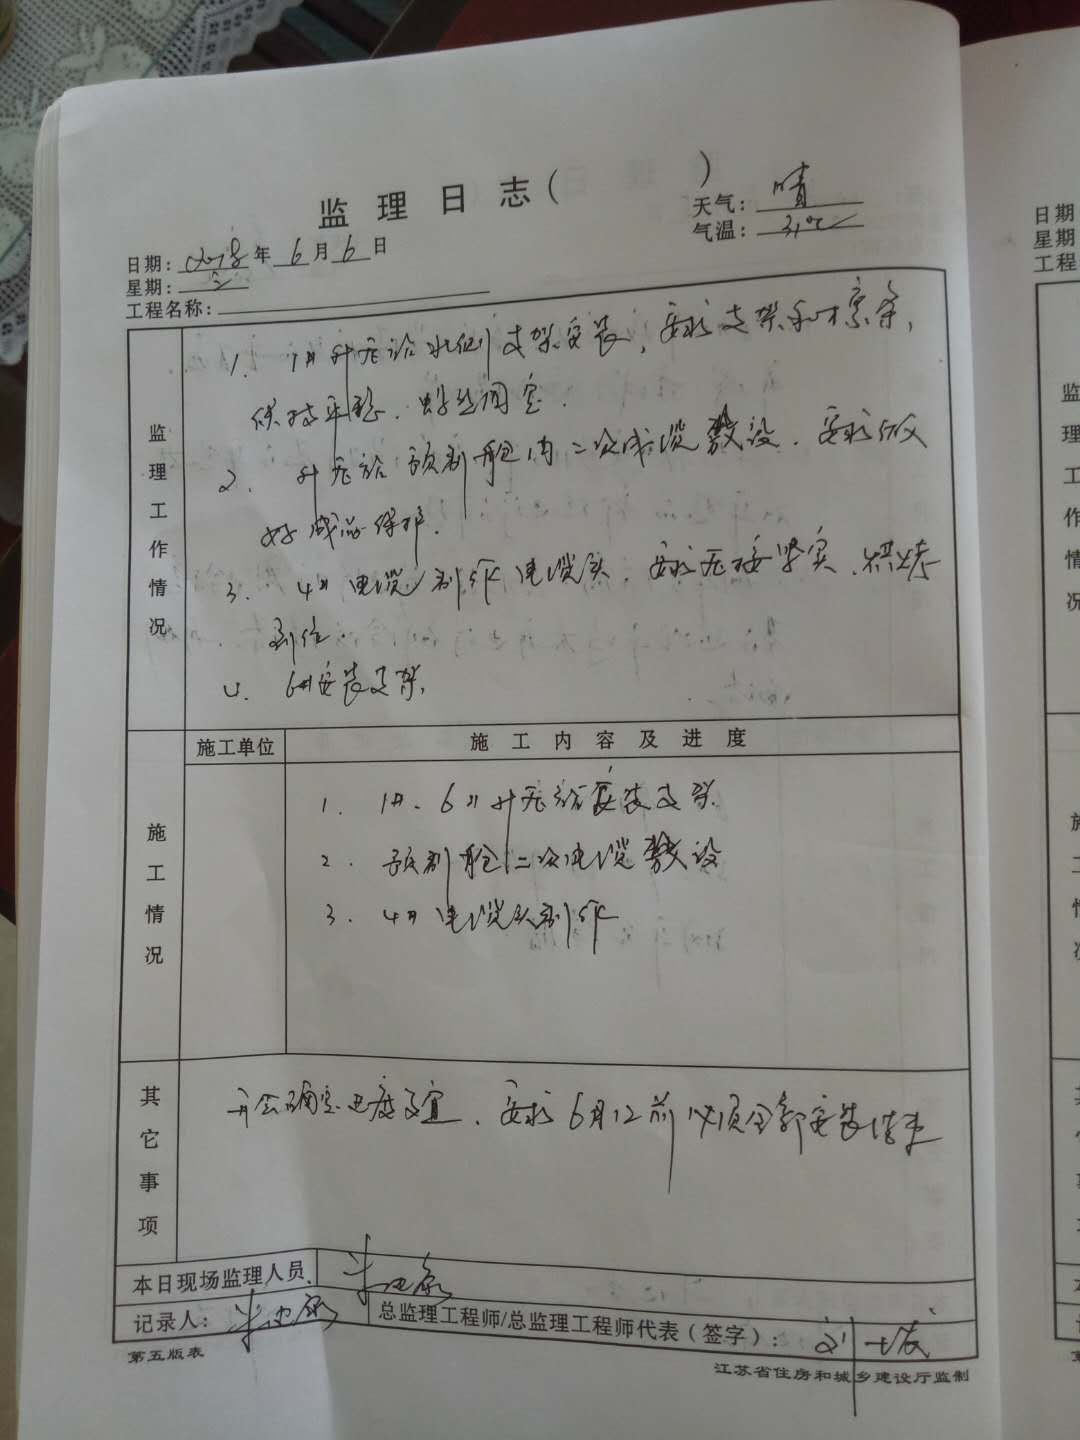 监理日志( )
天气: 晴
气温: 31℃
日期: 2018年6月6日
星期: 三
工程名称:
监理工作情况
1. 1# 升压站北侧支架安装,要求支架和檩条,
保持平稳、螺丝固定.
2. 升压站预制舱内二次电缆敷设.要求做
好成品保护.
3. 4# 电缆制作电缆头.要求压接紧实、烘烤
到位.
4. 6#安装支架.
施工单位 施工内容及进度
施工情况
1. 1#、6#升压站安装支架
2. 预制舱二次电缆敷设
3. 4# 电缆头制作
其它事项
开会确定进度事宜、要求6月12前必须全部安装结束
本日现场监理人员
记录人: 总监理工程师/总监理工程师代表(签字): 刘
第五版表 江苏省住房和城乡建设厅监制
日期
星期
工程